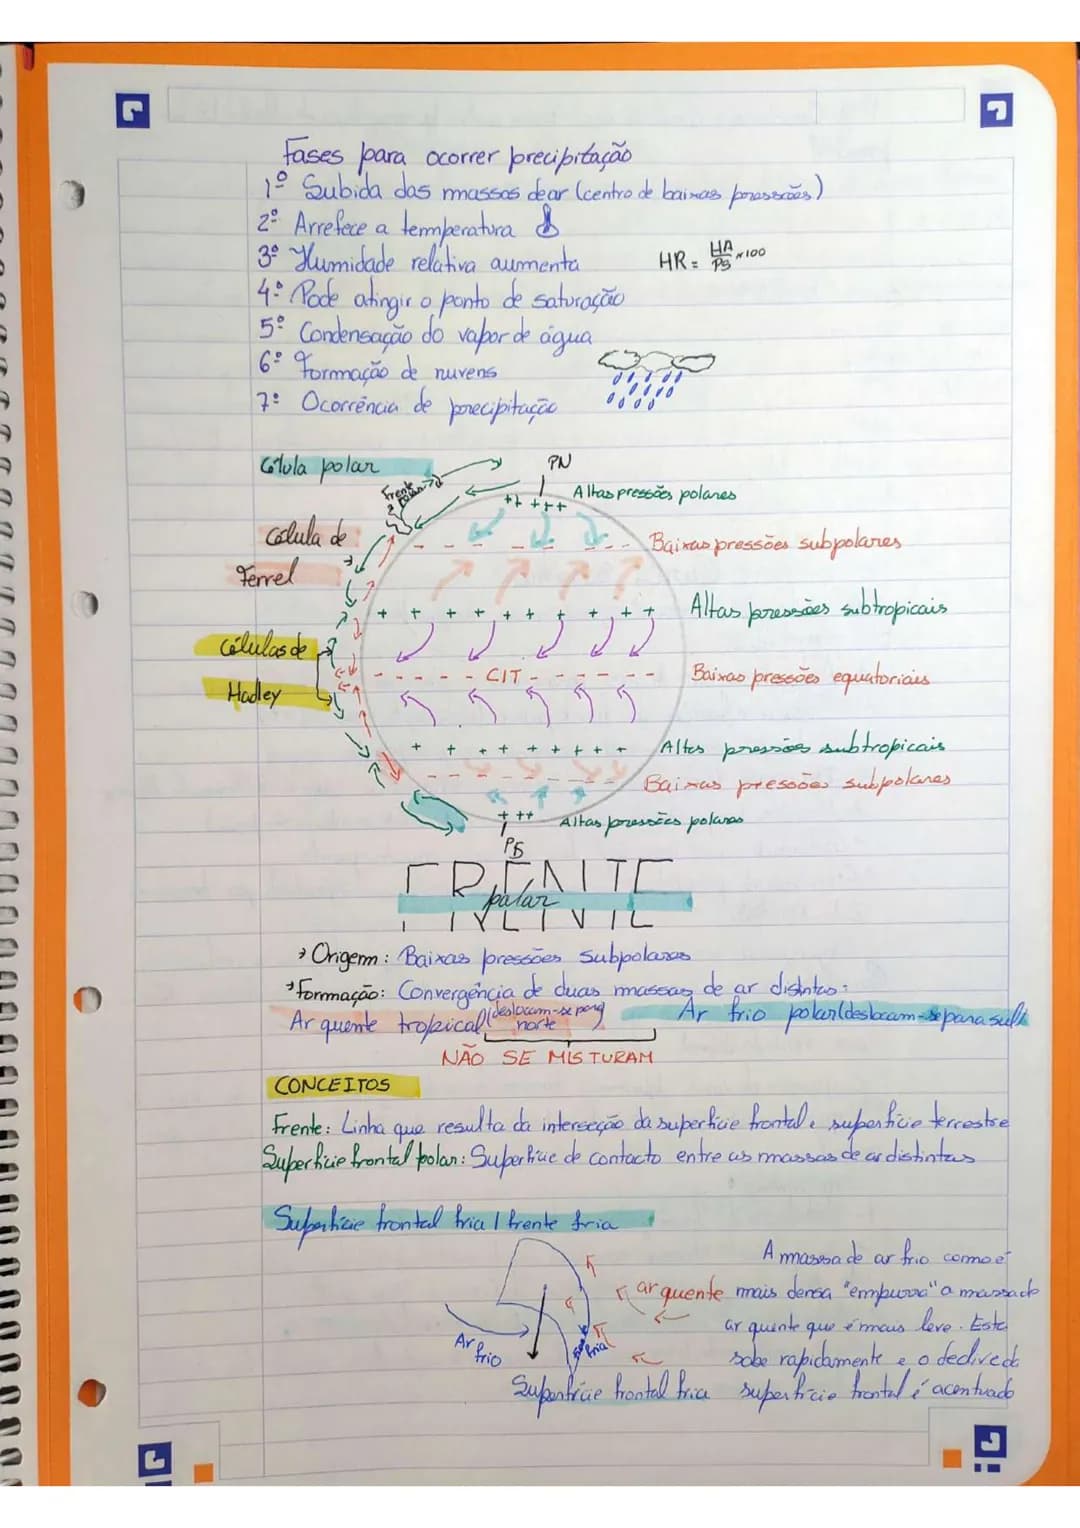 Fases para ocorrer precipitação
1º Subida das massas de ar (centro de baixas pressões)
2º Arrefece a temperatura
3º Humidade relativa aumenta HR = HA/PS ×100
4º Pode atingir o ponto de saturação
5º Condensação do vapor de água
6º Formação de nuvens
7º Ocorrência de precipitação
Célula polar
Frente polar
PN
Altas pressões polares
Célula de
Ferrel
Baixas pressões subpolares
Altas pressões subtropicais
Células de
Hadley
CIT
Baixas pressões equatoriais
Altas pressões subtropicais
Baixas pressões subpolares
Altas pressões polares
PS
FRENTE
polar
→ Origem: Baixas pressões subpolares
→ Formação: Convergência de duas massas de ar distintas:
Ar quente tropical (deslocam-se para norte) Ar frio polar (deslocam-se para sul)
NÃO SE MISTURAM
CONCEITOS
Frente: Linha que resulta da interseção da superfície frontal e superfície terrestre
Superfície frontal polar: Superfície de contacto entre as massas de ar distintas
Superfície frontal fria / frente fria
A massa de ar frio como é
ar quente
mais densa "empurra" a massa de
ar quente que é mais leve. Esta
sobe rapidamente e o declive da
superfície frontal é acentuado
Ar
frio
fria
Superfície frontal fria